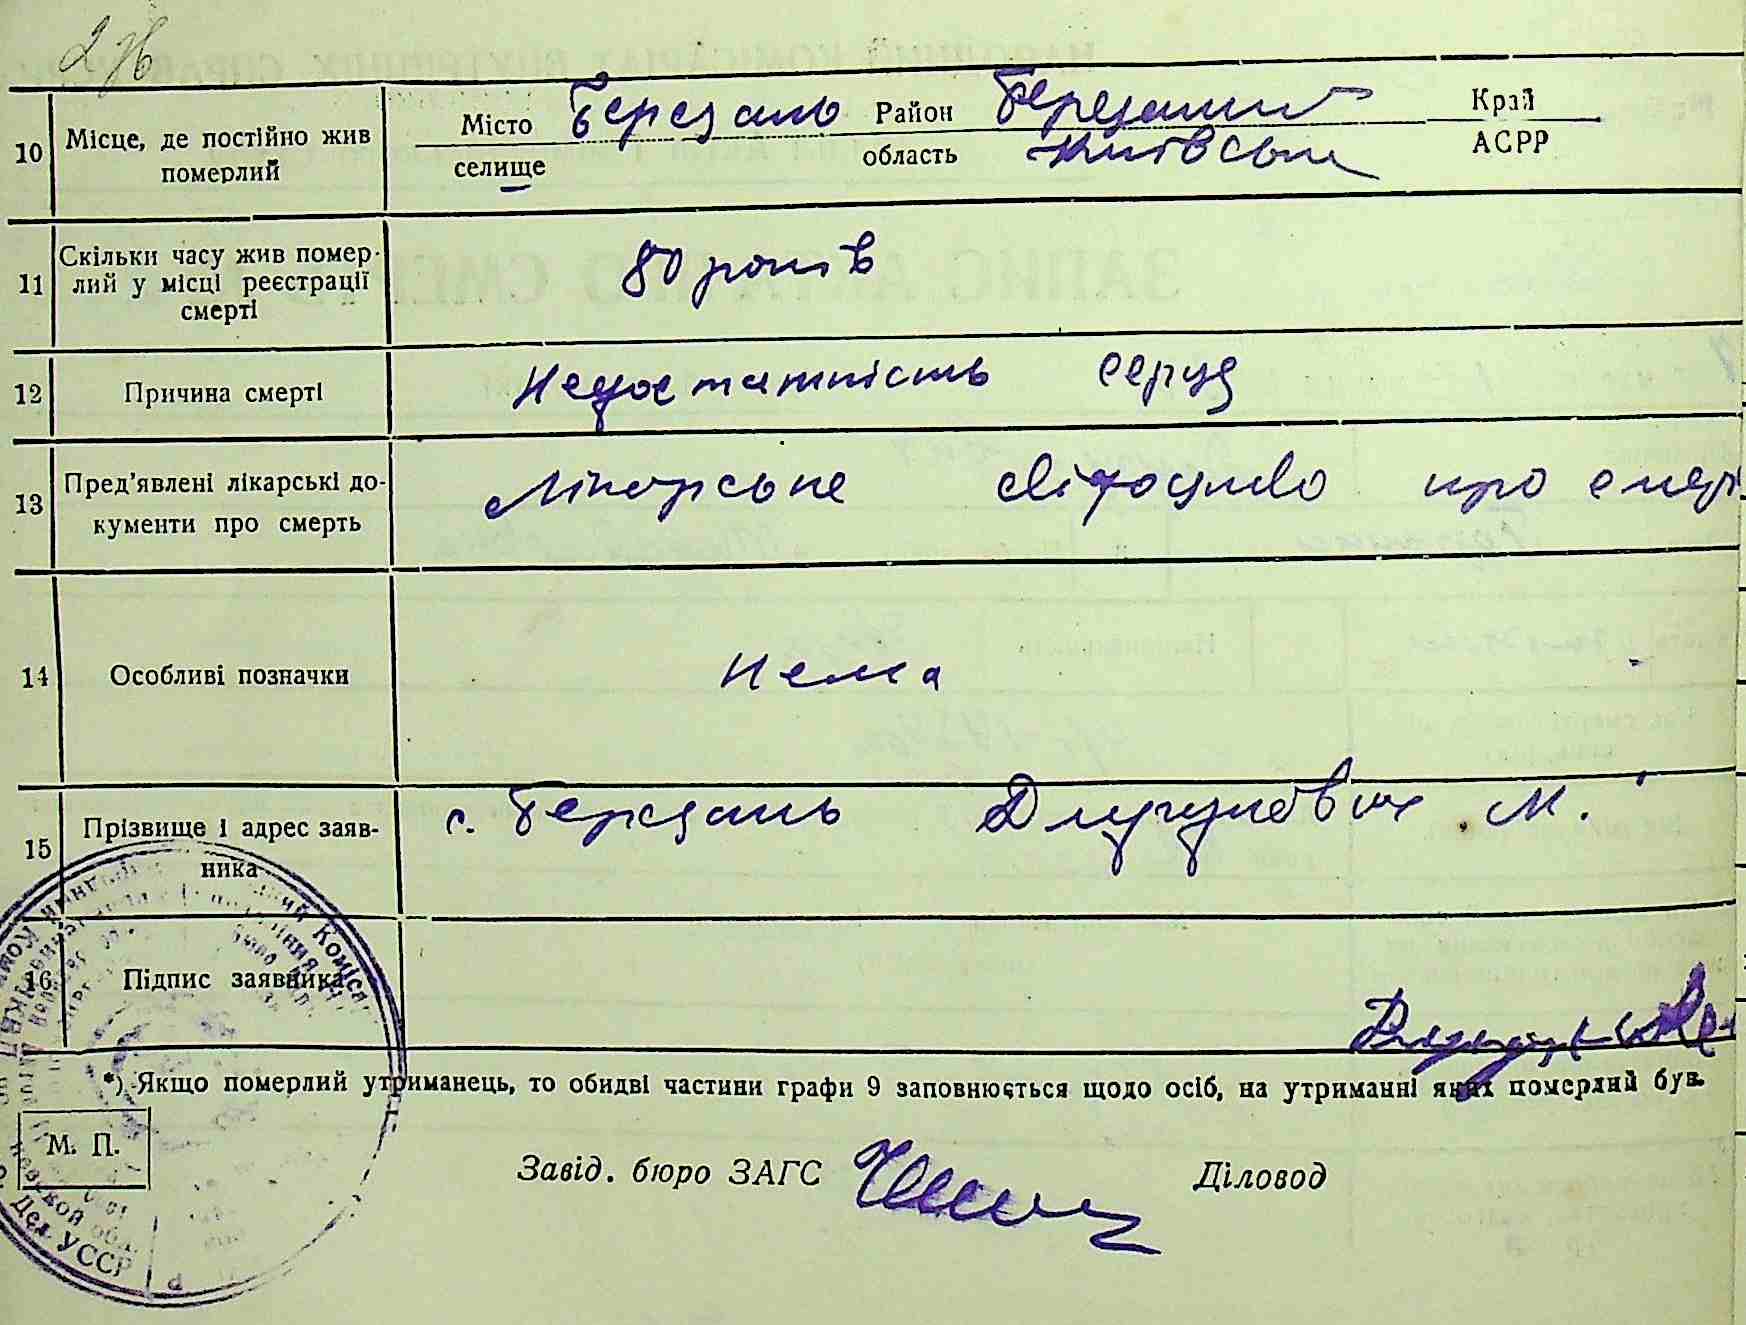 276
10 Місце, де постійно жив померлий
Місто Березань Район Березанський Край
селище область Київська АСРР
11 Скільки часу жив помер-
лий у місці реєстрації
смерті
80 років
12 Причина смерті Недостатність серця
13 Пред'явлені лікарські до-
кументи про смерть
Лікарське свідоцтво про смерт
14 Особливі позначки Нема
15 Прізвище і адрес заяв-
ника
с. Березань М.
16 Підпис заявника
*) Якщо померлий утриманець, то обидві частини графи 9 заповнюється щодо осіб, на утриманні яких померлий був.
М. П.
Завід. бюро ЗАГС Діловод
Дел. УССР